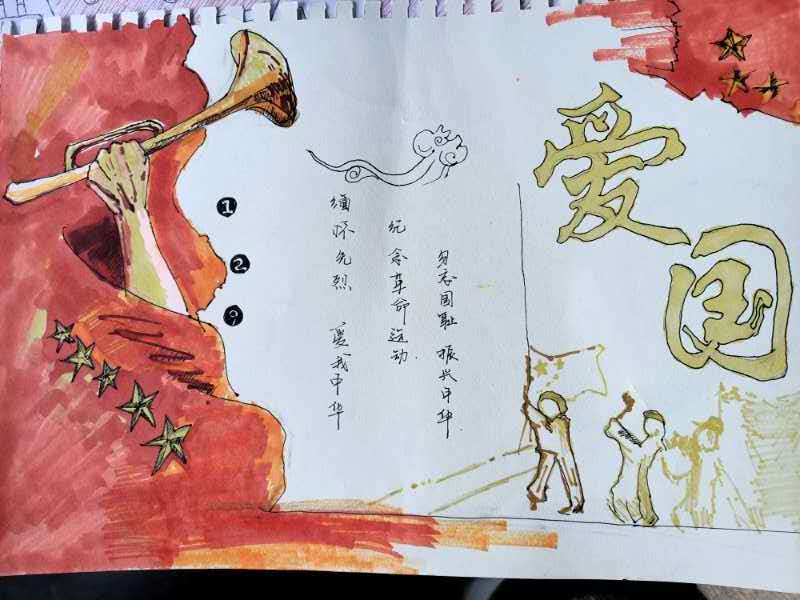 爱国
勿忘国耻 振兴中华.
纪念革命运动.
缅怀先烈 爱我中华
1
2
9